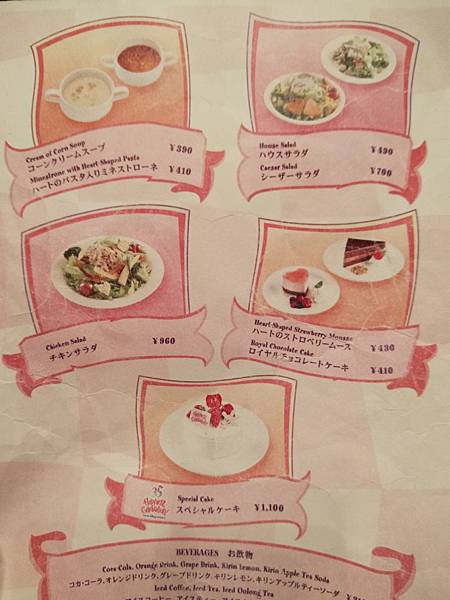 Cream of Corn Soup
コーンクリームスープ ¥390
Minestrone with Heart-Shaped Pasta
ハートのパスタ入りミネストローネ ¥410
House Salad
ハウスサラダ ¥490
Caesar Salad
シーザーサラダ ¥700
Chicken Salad
チキンサラダ ¥960
Heart-Shaped Strawberry Mousse
ハートのストロベリームース ¥430
Royal Chocolate Cake
ロイヤルチョコレートケーキ ¥410
25
Special Cake
スペシャルケーキ ¥1,100
BEVERAGES お飲物
Coca Cola, Orange Drink, Grape Drink, Kirin Lemon, Kirin Apple Tea Soda
コカ・コーラ, オレンジドリンク, グレープドリンク, キリンレモン, キリンアップルティーソーダ
Iced Coffee, Iced Tea, Iced Oolong Tea